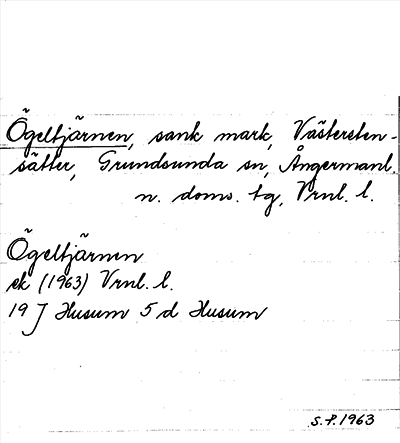 Ögeltjärnen, sank mark, Västersten-
sätter, Grundsunda sn, Ångermanl.
n. doms. tg, Vrnl. l.
Ögeltjärnen
ek (1963) Vrnl. l.
19 J Husum 5 d Husum
S.F. 1963